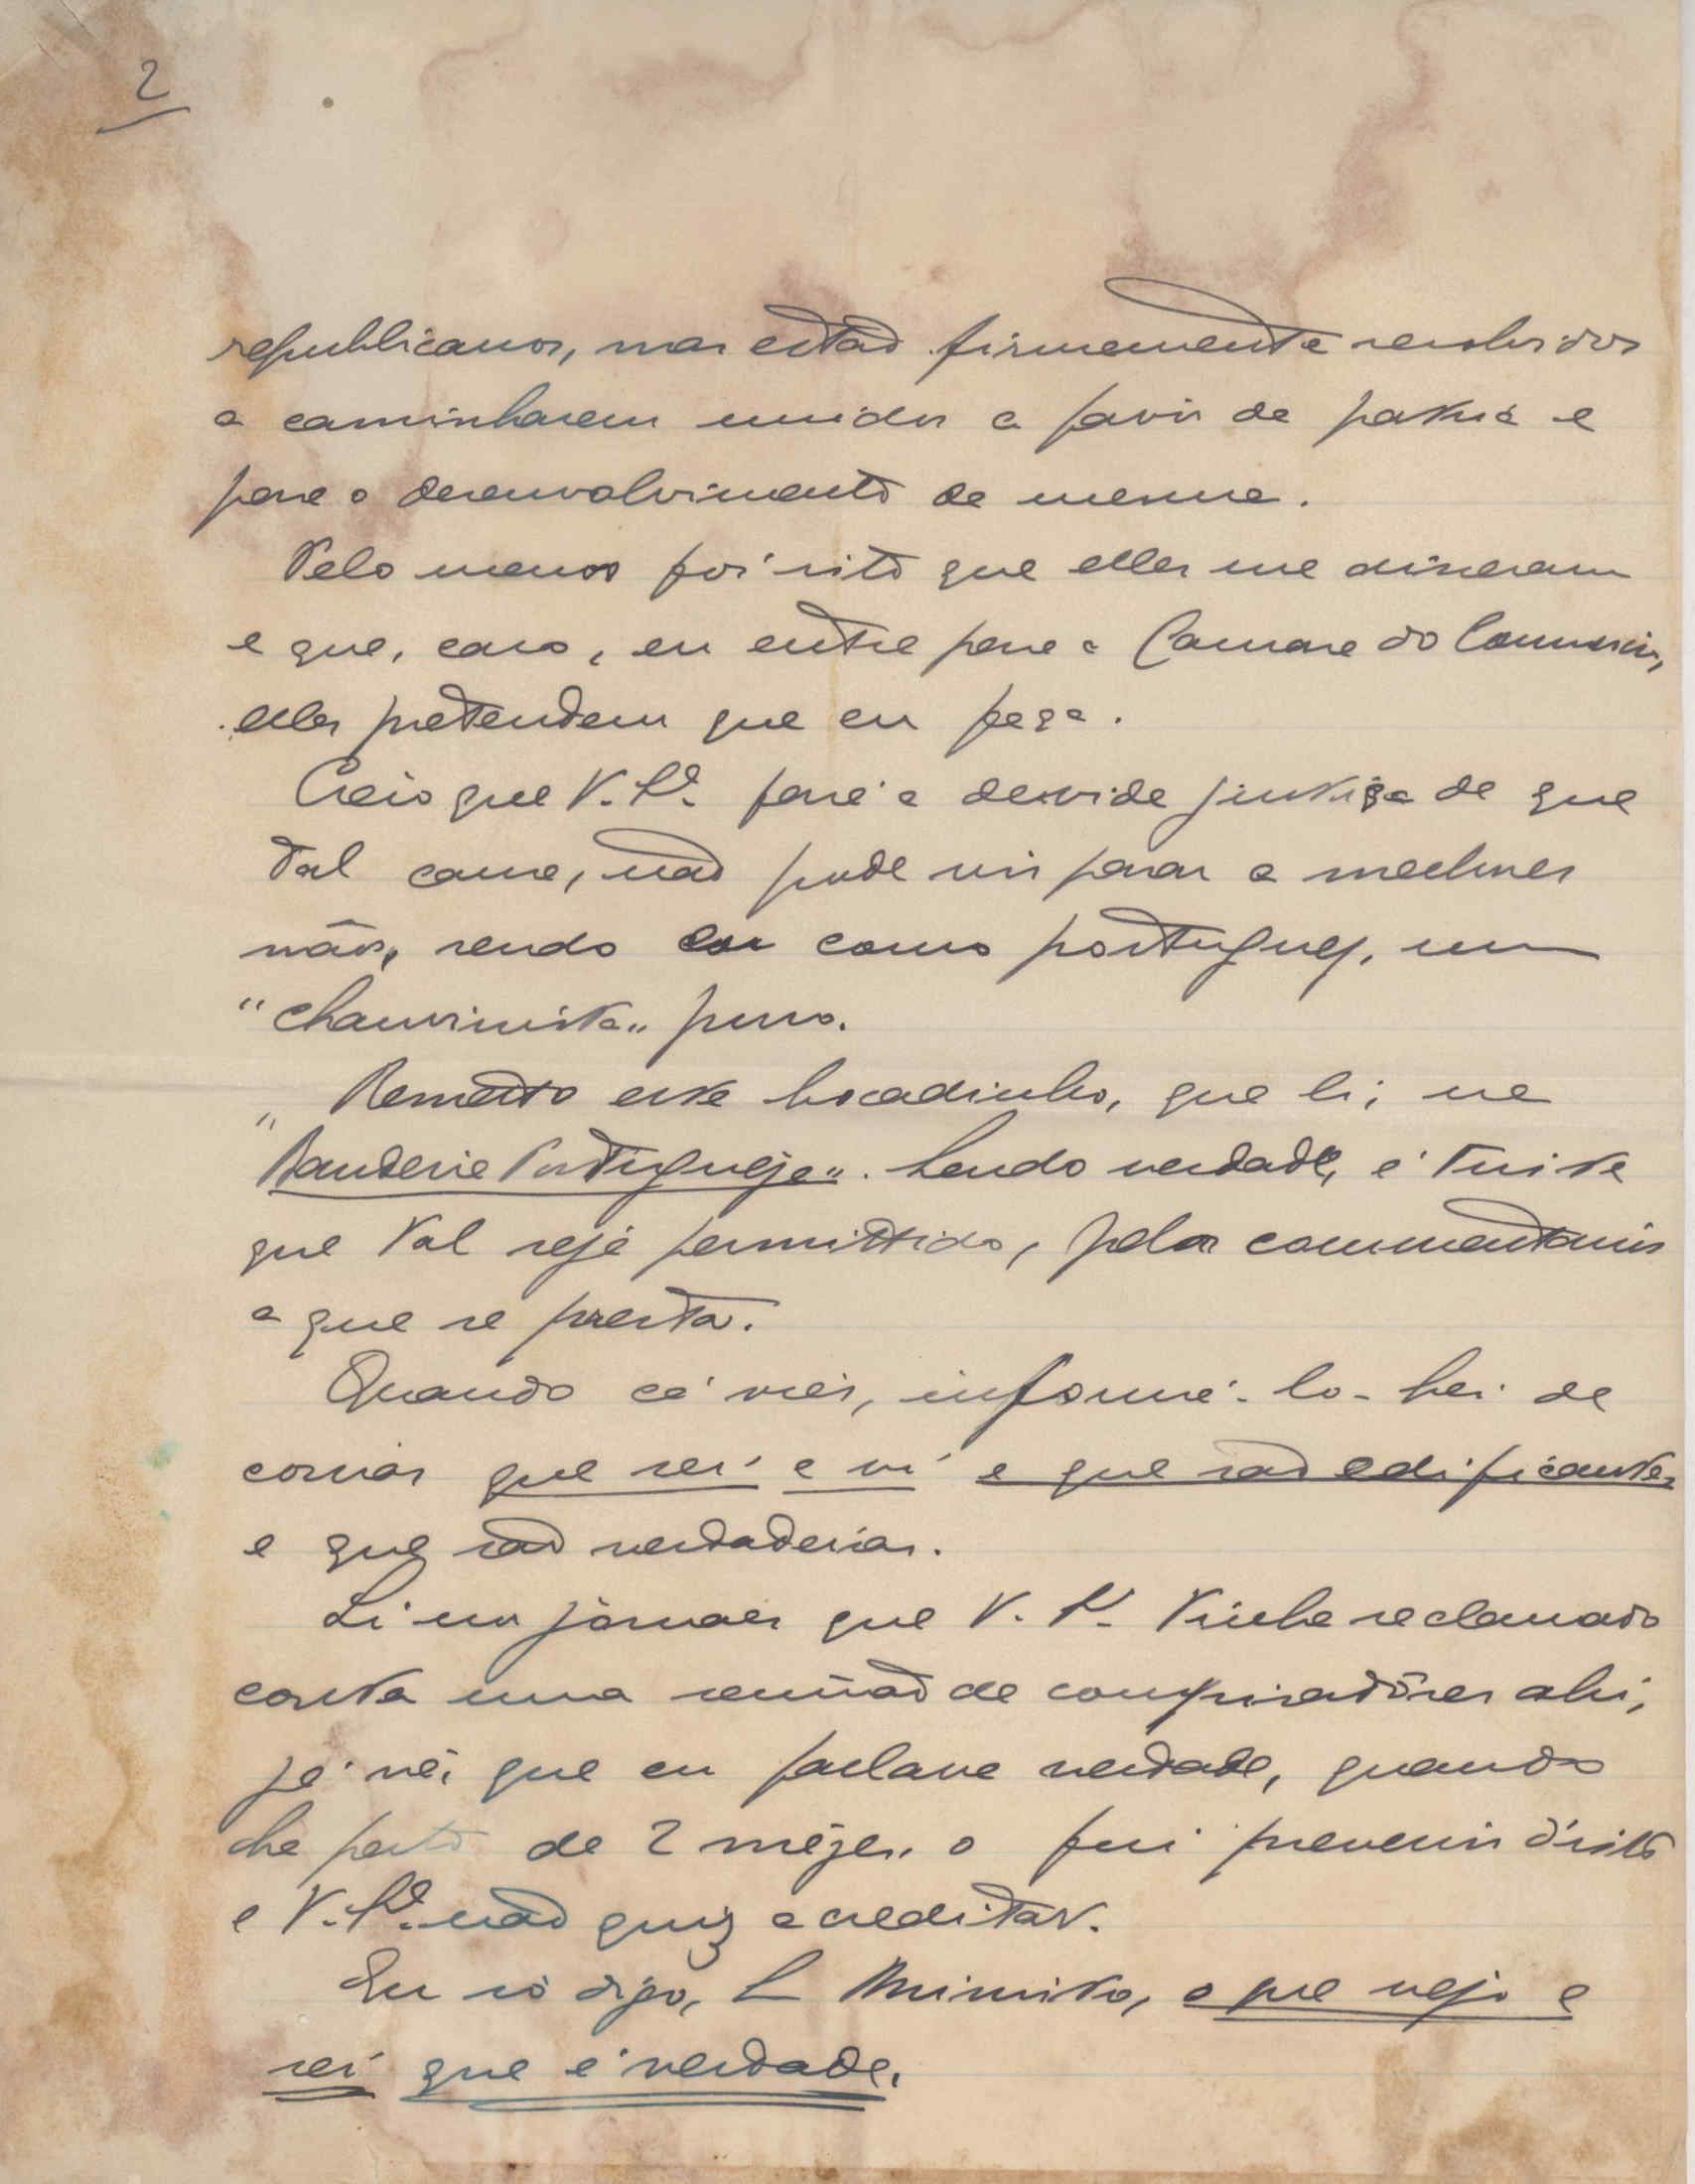 2
republicanos, mas estão firmemente resolvidos
a caminharem unidos a favor da patria e
para o desenvolvimento da mesma.
Pelo menos foi isto que elles me disseram
e que, caso, eu entre para a Camara do Commercio,
elles pretendem que eu faça.
Creio que V. Sª. fará a devida justiça de que
tal causa, não pode vir parar a melhores
mãos, sendo eu como portuguez, um
"chauvinista" puro.
Remetto este bocadinho, que li, na
"Bandeira Portugueza". Sendo verdade, é triste
que tal seja permittido, pelos commentarios
a que se presta.
Quando cá vier, informá-lo-hei de
coisas que sei e vi e que são edificantes
e que são verdadeiras.
Li nos jornaes que V. Sª. tinha reclamado
contra uma reunião de conspiradôres ahi,
já vê, que eu fallava verdade, quando
ha perto de 2 mêzes, o fui prevenir d'isto
e V. Sª. não quiz acreditar.
Eu só digo, S. Ministro, o que vejo e
sei que é verdade.